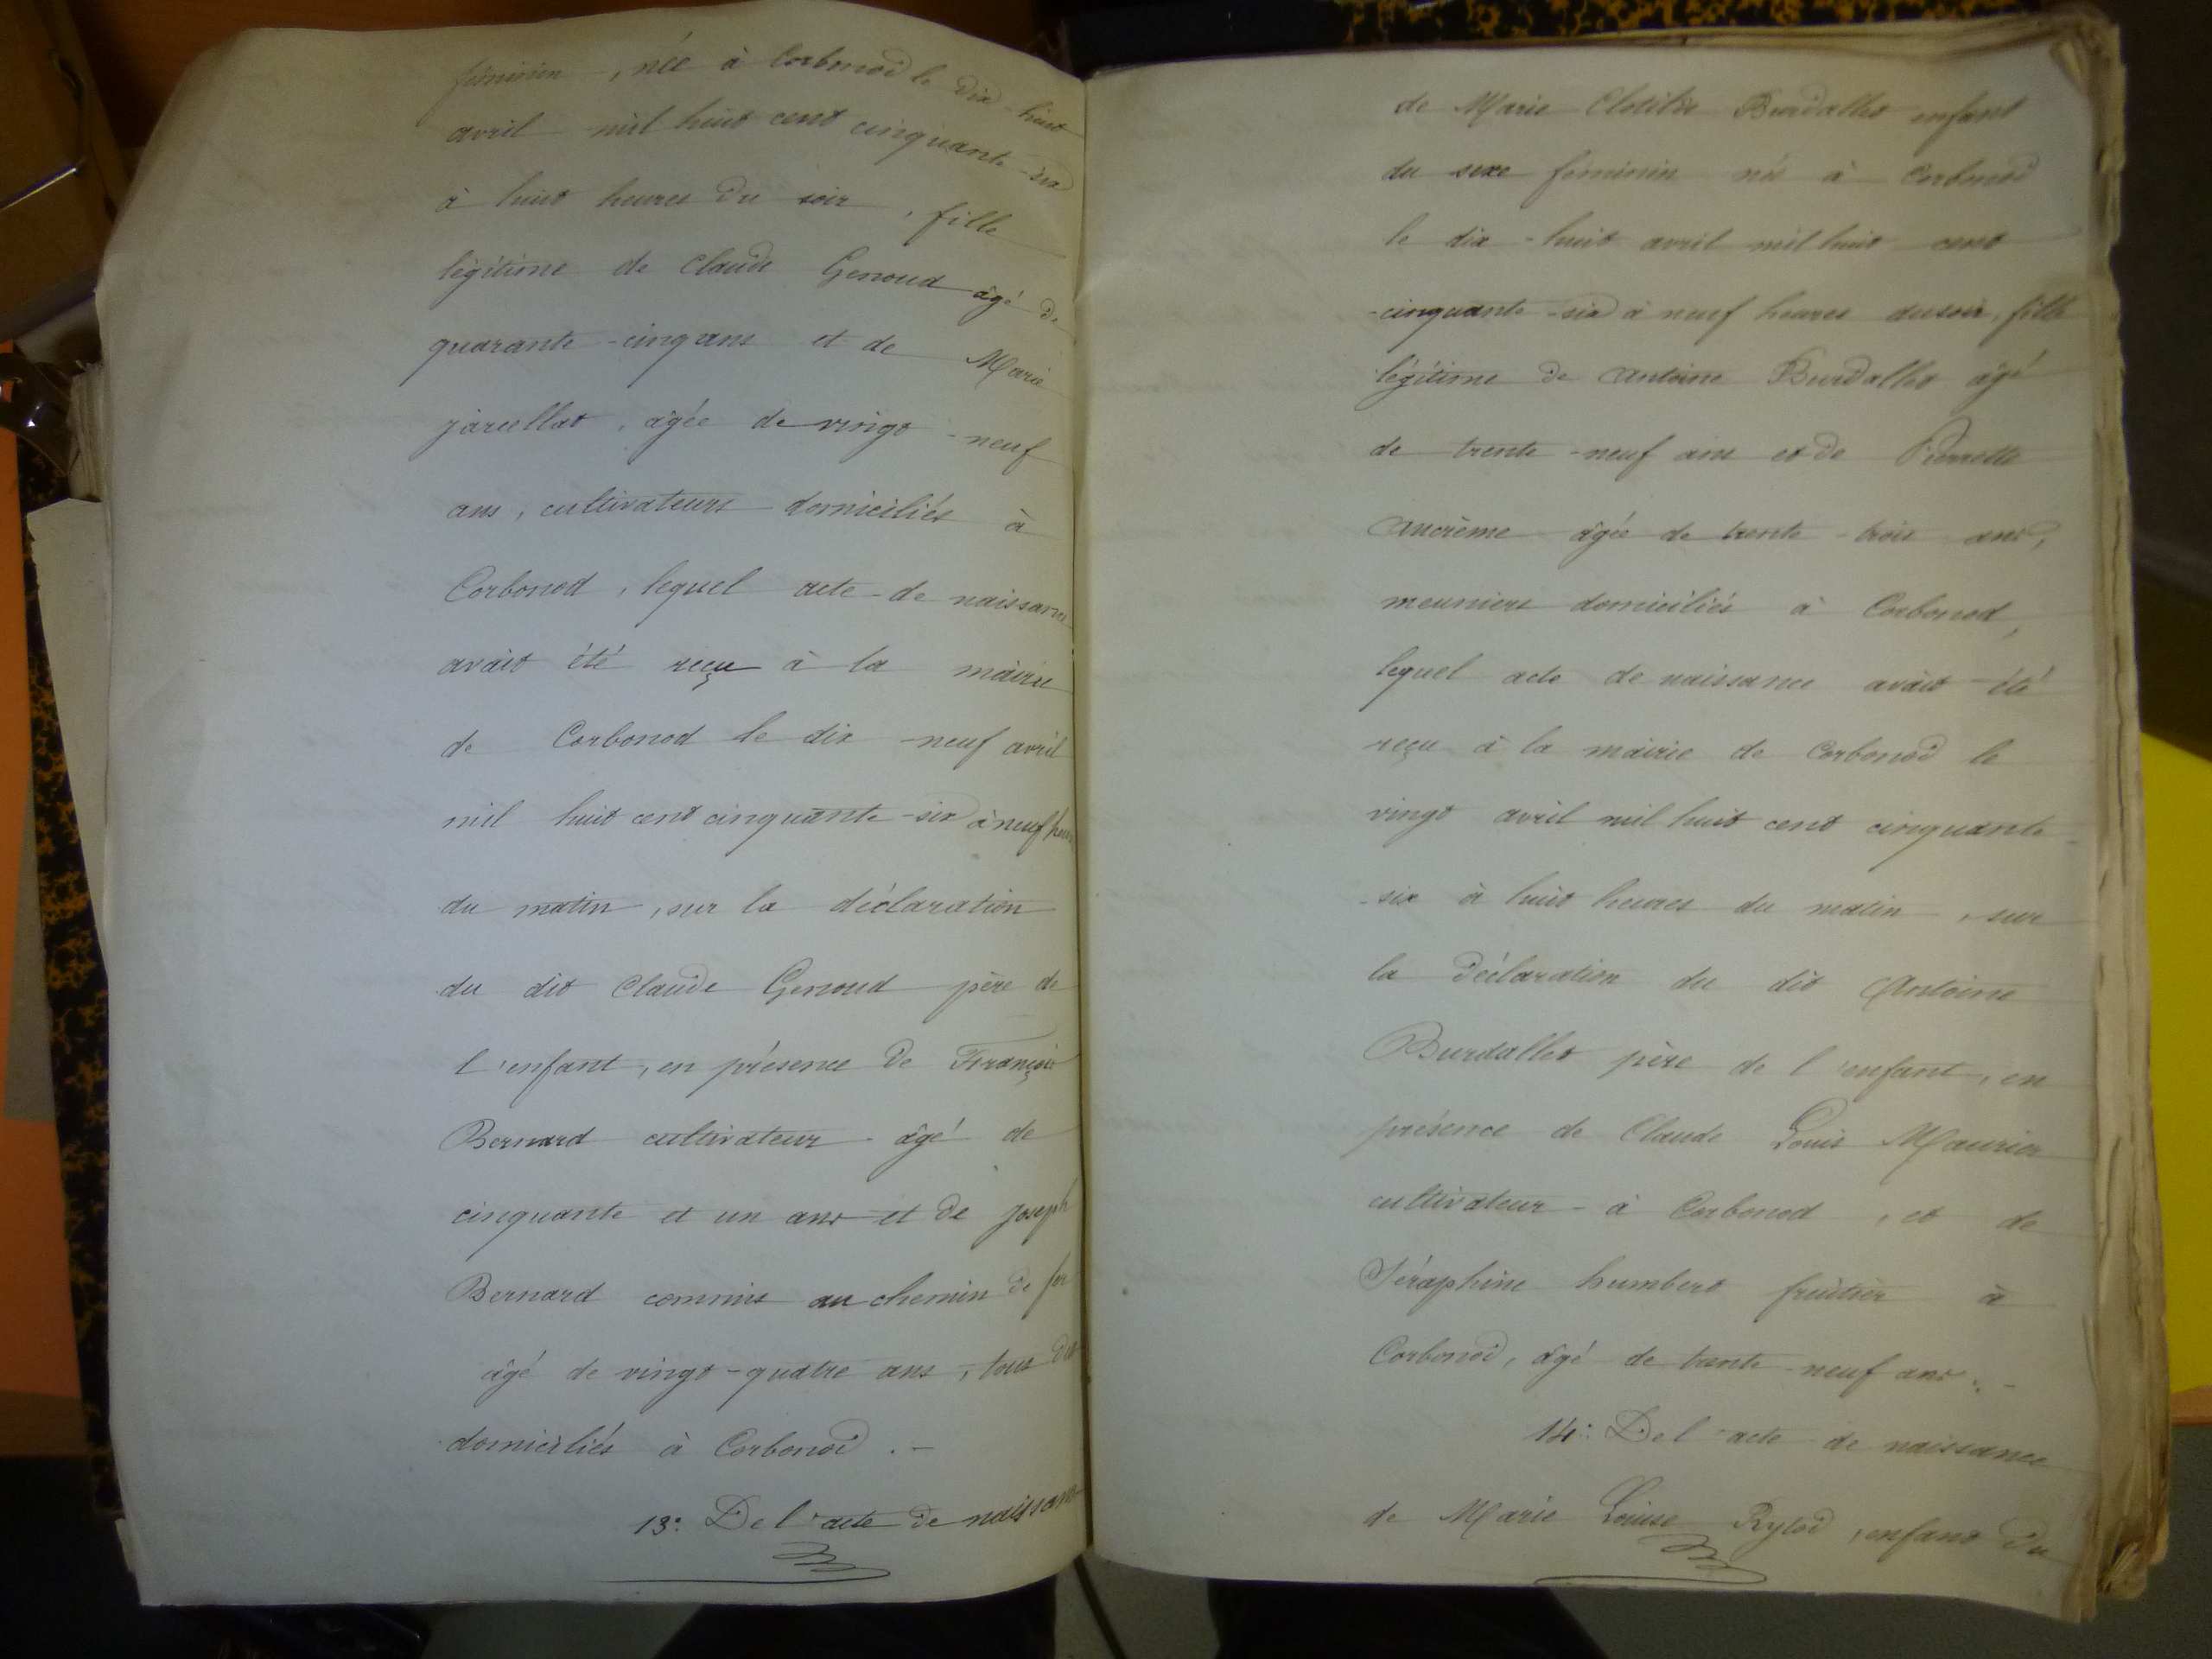 féminin, née à Corbonod le dix-huit
avril mil huit cent cinquante-six
à huit heures du soir, fille
légitime de Claude Genoud âgé de
quarante-cinq ans et de Marie
jarcellat, âgée de vingt-neuf
ans, cultivateurs domiciliés à
Corbonod, lequel acte de naissance
avait été reçu à la mairie
de Corbonod le dix-neuf avril
mil huit cent cinquante-six à neuf heures
du matin, sur la déclaration
du dit Claude Genoud père de
l'enfant, en présence de François
Bernard cultivateur âgé de
cinquante et un ans et de joseph
Bernard commis au chemin de fer
âgé de vingt-quatre ans, tous deux
domiciliés à Corbonod.-
13° De l'acte de naissance
de Marie Clotilde Burdallet enfant
du sexe féminin né à Corbonod
le dix-huit avril mil huit cent
-cinquante-six à neuf heures du soir, fille
légitime de Antoine Burdallet âgé
de trente-neuf ans et de Pierrette
Ancrème âgée de trente-trois ans,
meuniers domiciliés à Corbonod,
lequel acte de naissance avait été
reçu à la mairie de Corbonod le
vingt avril mil huit cent cinquante-
-six à huit heures du matin, sur
la déclaration du dit Antoine
Burdallet père de l'enfant, en
présence de Claude Louis Maurier
cultivateur à Corbonod, et de
Séraphine humbert fruitier à
Corbonod, âgé de trente-neuf ans.-
14° De l'acte de naissance
de Marie Louise Rylod, enfant du